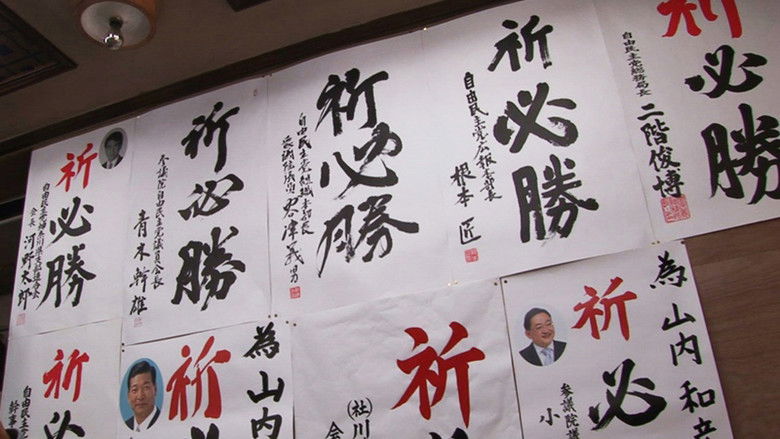 祈必勝
自由民主党神奈川県支部連合会
会長 河野太郎
祈必勝
参議院自由民主党議員会長
青木幹雄
祈必勝
自由民主党組織本部長
衆議院議員 谷津義男
祈必勝
自由民主党広報
根本匠
祈必勝
自由民主党総務局長
二階俊博
祈必
自由民主党
幹事
為山内
祈
祈
(社)川
会
為山内和
祈必
参議院議
小